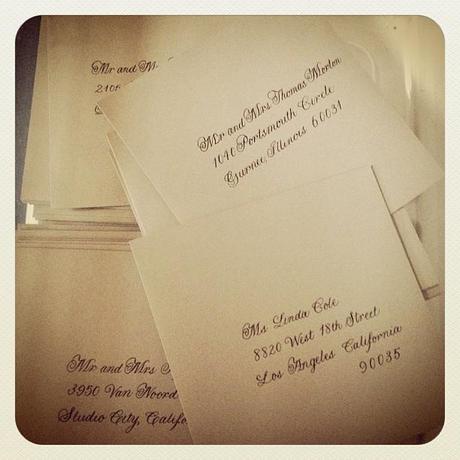 Mr and
2105
Mr and Mrs Thomas Morton
1040 Portsmouth Circle
Gurnee, Illinois 60031
Ms Linda Cole
8820 West 18th Street
Los Angeles California
90035
Mr and Mrs
3950 Van Noord
Studio City, Califo